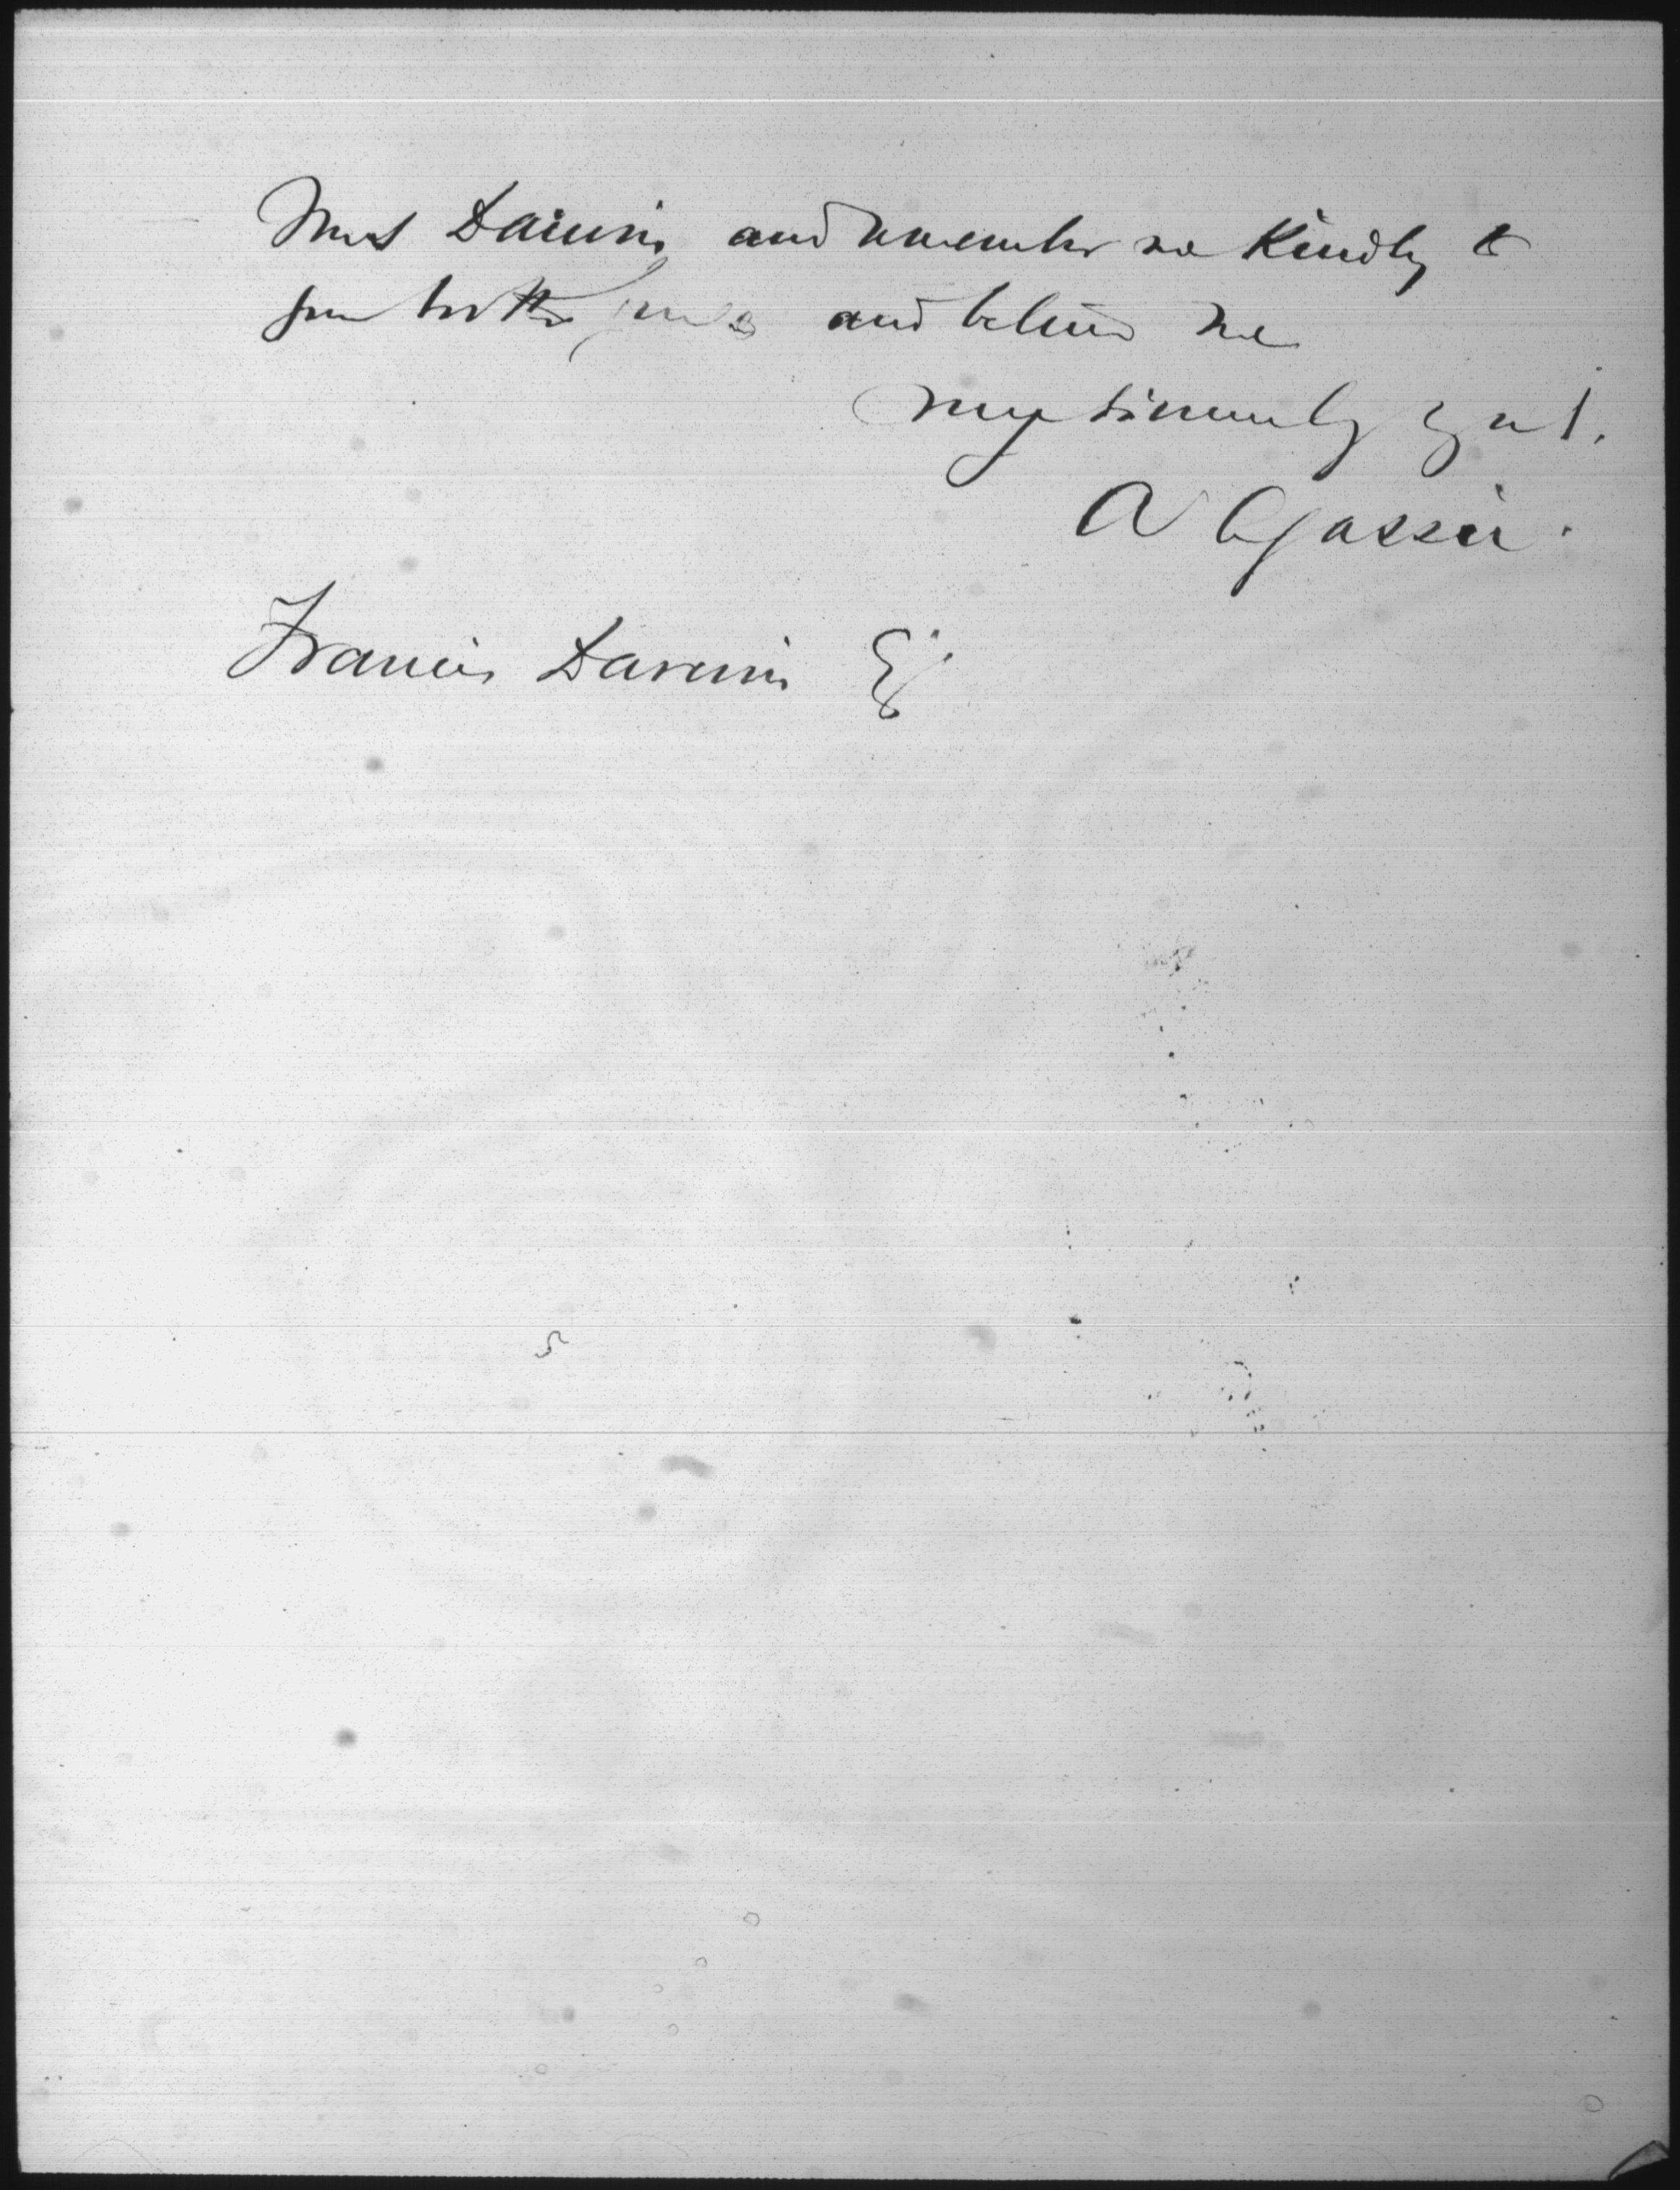 Mrs Darwin and remember me kindly to
your brother and believe me
very sincerely yours.
A Agassiz.
Francis Darwin Esq